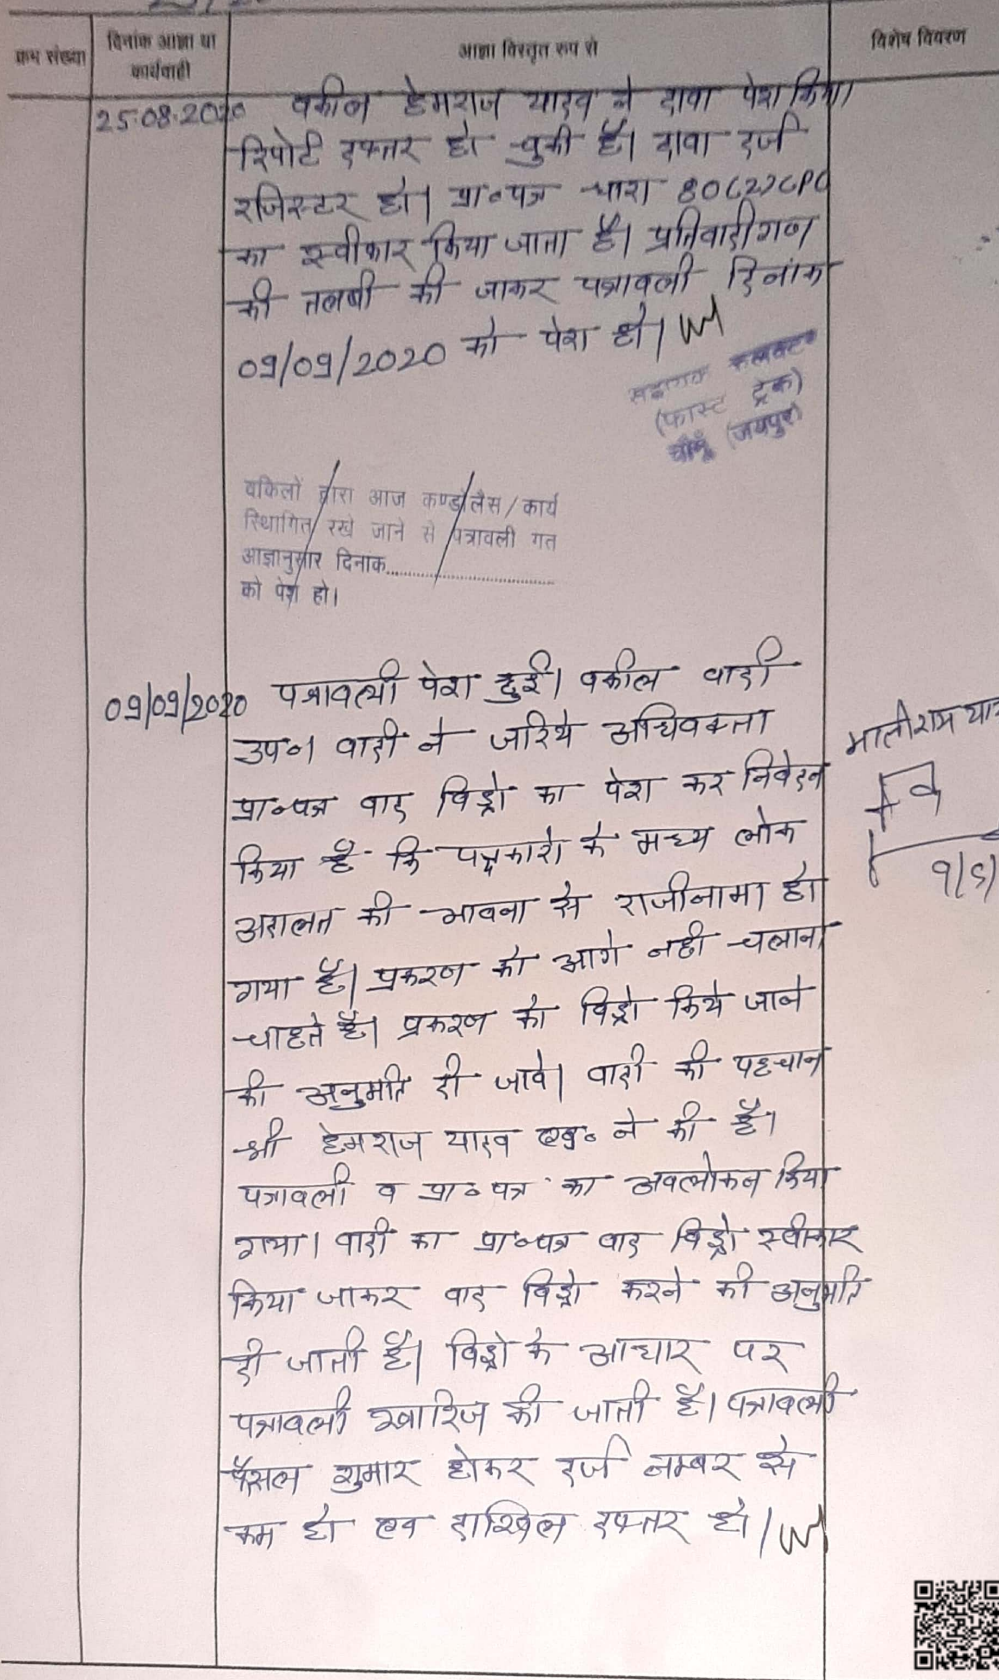 क्रम संख्या
दिनांक आज्ञा या
कार्यवाही
आज्ञा विस्तृत रूप से
विशेष विवरण
25.08.2020 वकील हेमराज यादव ने दावा पेश किया
रिपोर्ट दफ्तर हो चुकी है। दावा दर्ज
रजिस्टर हो। प्रा०पत्र धारा 80(2)CPC
का स्वीकार किया जाता है। प्रतिवादीगण
की तलबी की जाकर पत्रावली दिनांक
09/09/2020 को पेश हो।
सहायक कलक्टर
(फास्ट ट्रेक)
चौमूँ (जयपुर)
वकिलों द्वारा आज कण्डोलैस/कार्य
स्थिागित रखे जाने से पत्रावली गत
आज्ञानुसार दिनांक..............................
को पेश हो।
09/09/2020 पत्रावली पेश हुई। वकील वादी
उप० वादी ने जरिये अधिवक्ता
प्रा०पत्र वाद विड्रो का पेश कर निवेदन
किया है कि पक्षकारो के मध्य लोक
अदालत की भावना से राजीनामा हो
गया है। प्रकरण को आगे नही चलाना
चाहते है। प्रकरण को विड्रो किये जाने
की अनुमति दी जावे। वादी की पहचान
श्री हेमराज यादव एड० ने की है।
पत्रावली व प्रा० पत्र का अवलोकन किया
गया। वादी का प्रा०पत्र वाद विड्रो स्वीकार
किया जाकर वाद विड्रो करने की अनुमति
दी जाती है। विड्रो के आधार पर
पत्रावली खारिज की जाती है। पत्रावली
फैसल शुमार होकर दर्ज नम्बर से
कम हो एव दाखिल दफ्तर हो।
मालीराम